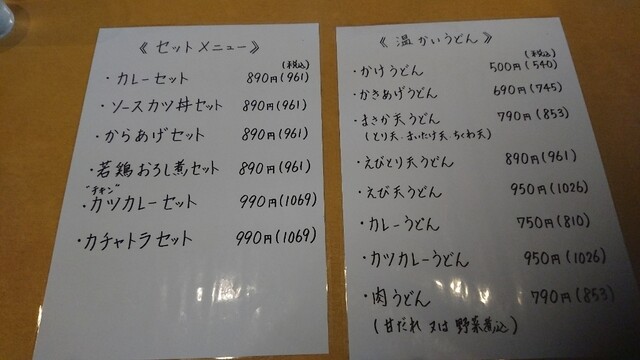 《 セットメニュー 》
(税込)
・カレーセット 890円(961)
・ソースカツ丼セット 890円(961)
・からあげセット 890円(961)
・若鶏おろし煮セット 890円(961)
"チキン"
・カツカレーセット 990円(1069)
・カチャトラセット 990円(1069)
《 温かいうどん 》
(税込)
・かけうどん 500円(540)
・かきあげうどん 690円(745)
・まさか天うどん 790円(853)
(とり天・まいたけ天・ちくわ天)
・えびとり天うどん 890円(961)
・えび天うどん 950円(1026)
・カレーうどん 750円(810)
・カツカレーうどん 950円(1026)
・肉うどん 790円(853)
(甘だれ 又は 野菜煮込)